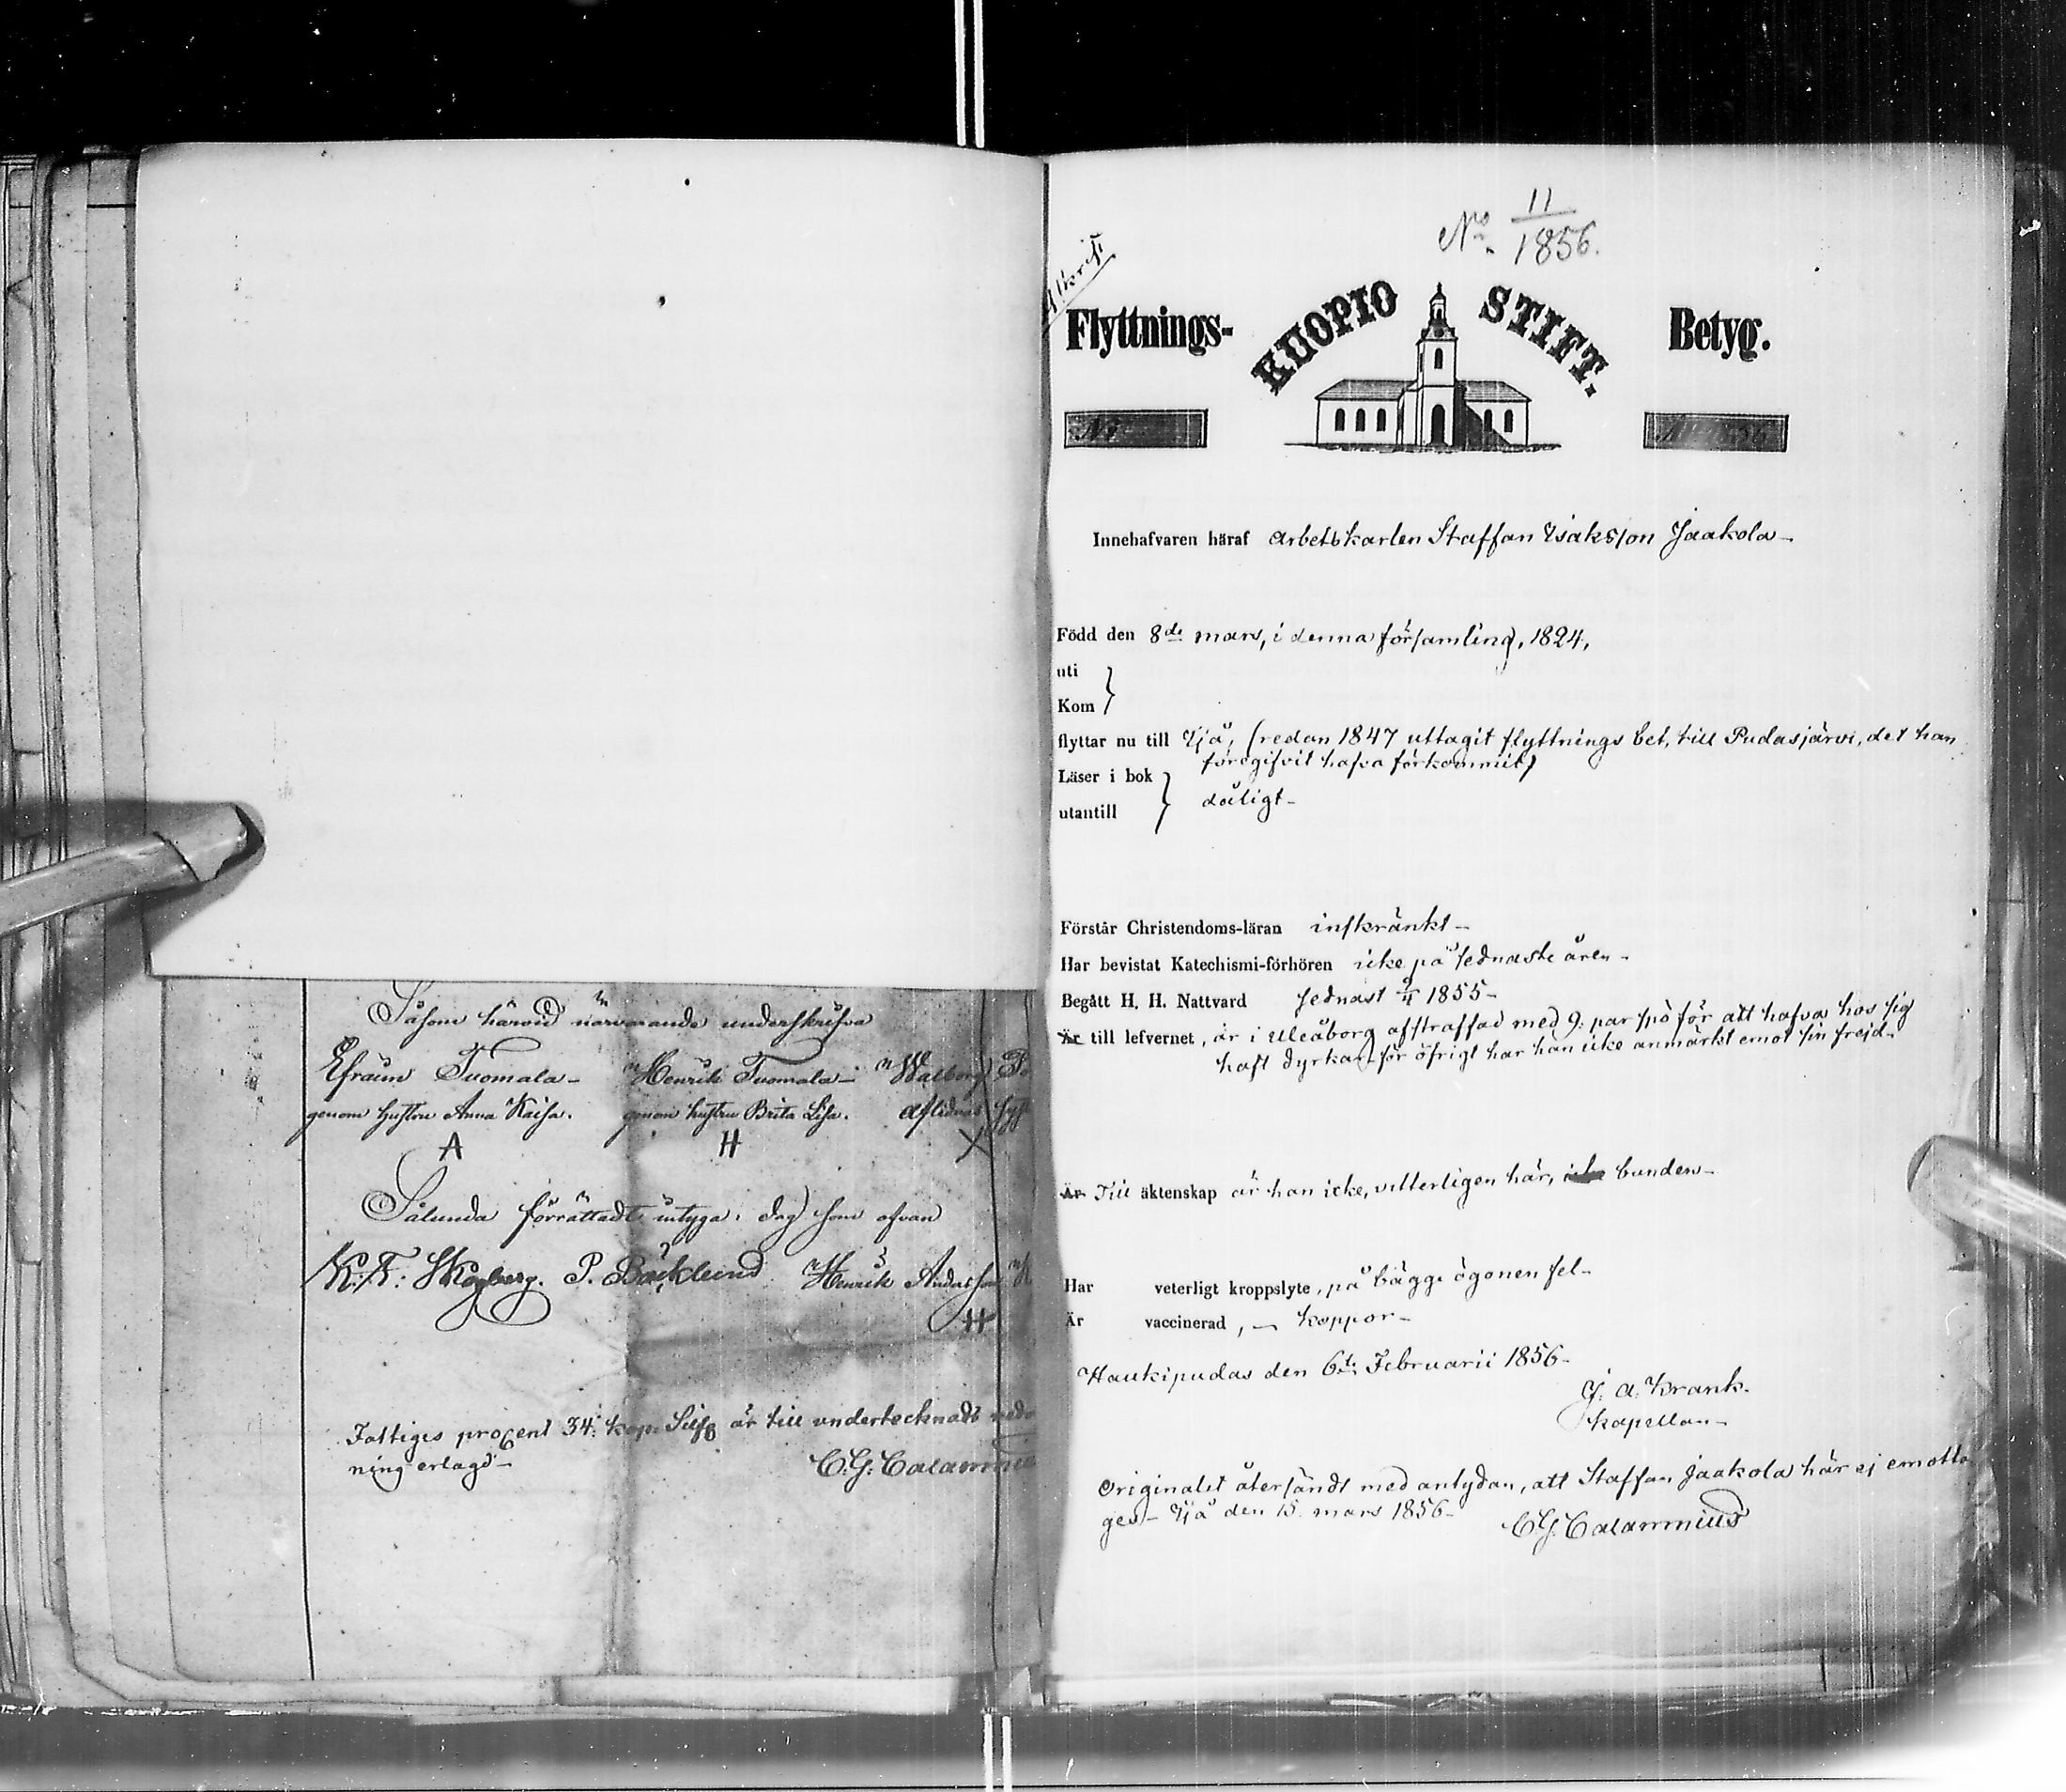 Såsom härvid närvarande underskrifva
Efraim Tuomala- Henrik Tuomala- Walborg
genom hustru Anna Kaisa. genom hustru Brita Lisa. aflidnas
A H X
Sålunda förrättadt intyga. Dag som ofvan
P. Bäcklund Henrik Andersson
H
Fattiges procent 34. kop. Silf är till undertecknads
ning erlagd-
C.G. Calamnius
No 11/1856.
Afskrift
Flyttnings- KUOPIO STIFT. Betyg.
No
Innehafvaren häraf Arbetskarlen Staffan Isaksson Jaakola-
Född den 8de mars, i denna församling, 1824,
uti
Kom
flyttar nu till Ijå, (redan 1847 uttagit flyttnings bet. till Pudasjärvi, det han
föregifvit hafva förkommit)
Läser i bok
utantill } dåligt-
Förstår Christendoms-läran inskränkt-
Har bevistat Katechismi-förhören icke på sednaste åren-
Begått H. H. Nattvard sednast 9/4 1855-
Är till lefvernet, är i Uleåborg afstraffad med 9. par spö för att hafva hos sig
haft dyrkar, för öfrigt har han icke anmärkt emot sin frejd-
Är Till äktenskap är han icke, vitterligen här, icke bunden-
Har veterligt kroppslyte, på bägge ögonen fel-
Är vaccinerad, - koppor-
Haukipudas den 6te Februarii 1856-
J. A. Krank.
Kapellan-
Originalet återsändt med antydan, att Staffan Jaakola här ej emotta
ges- Ijå den 15. mars 1856-
C.G. Calamnius